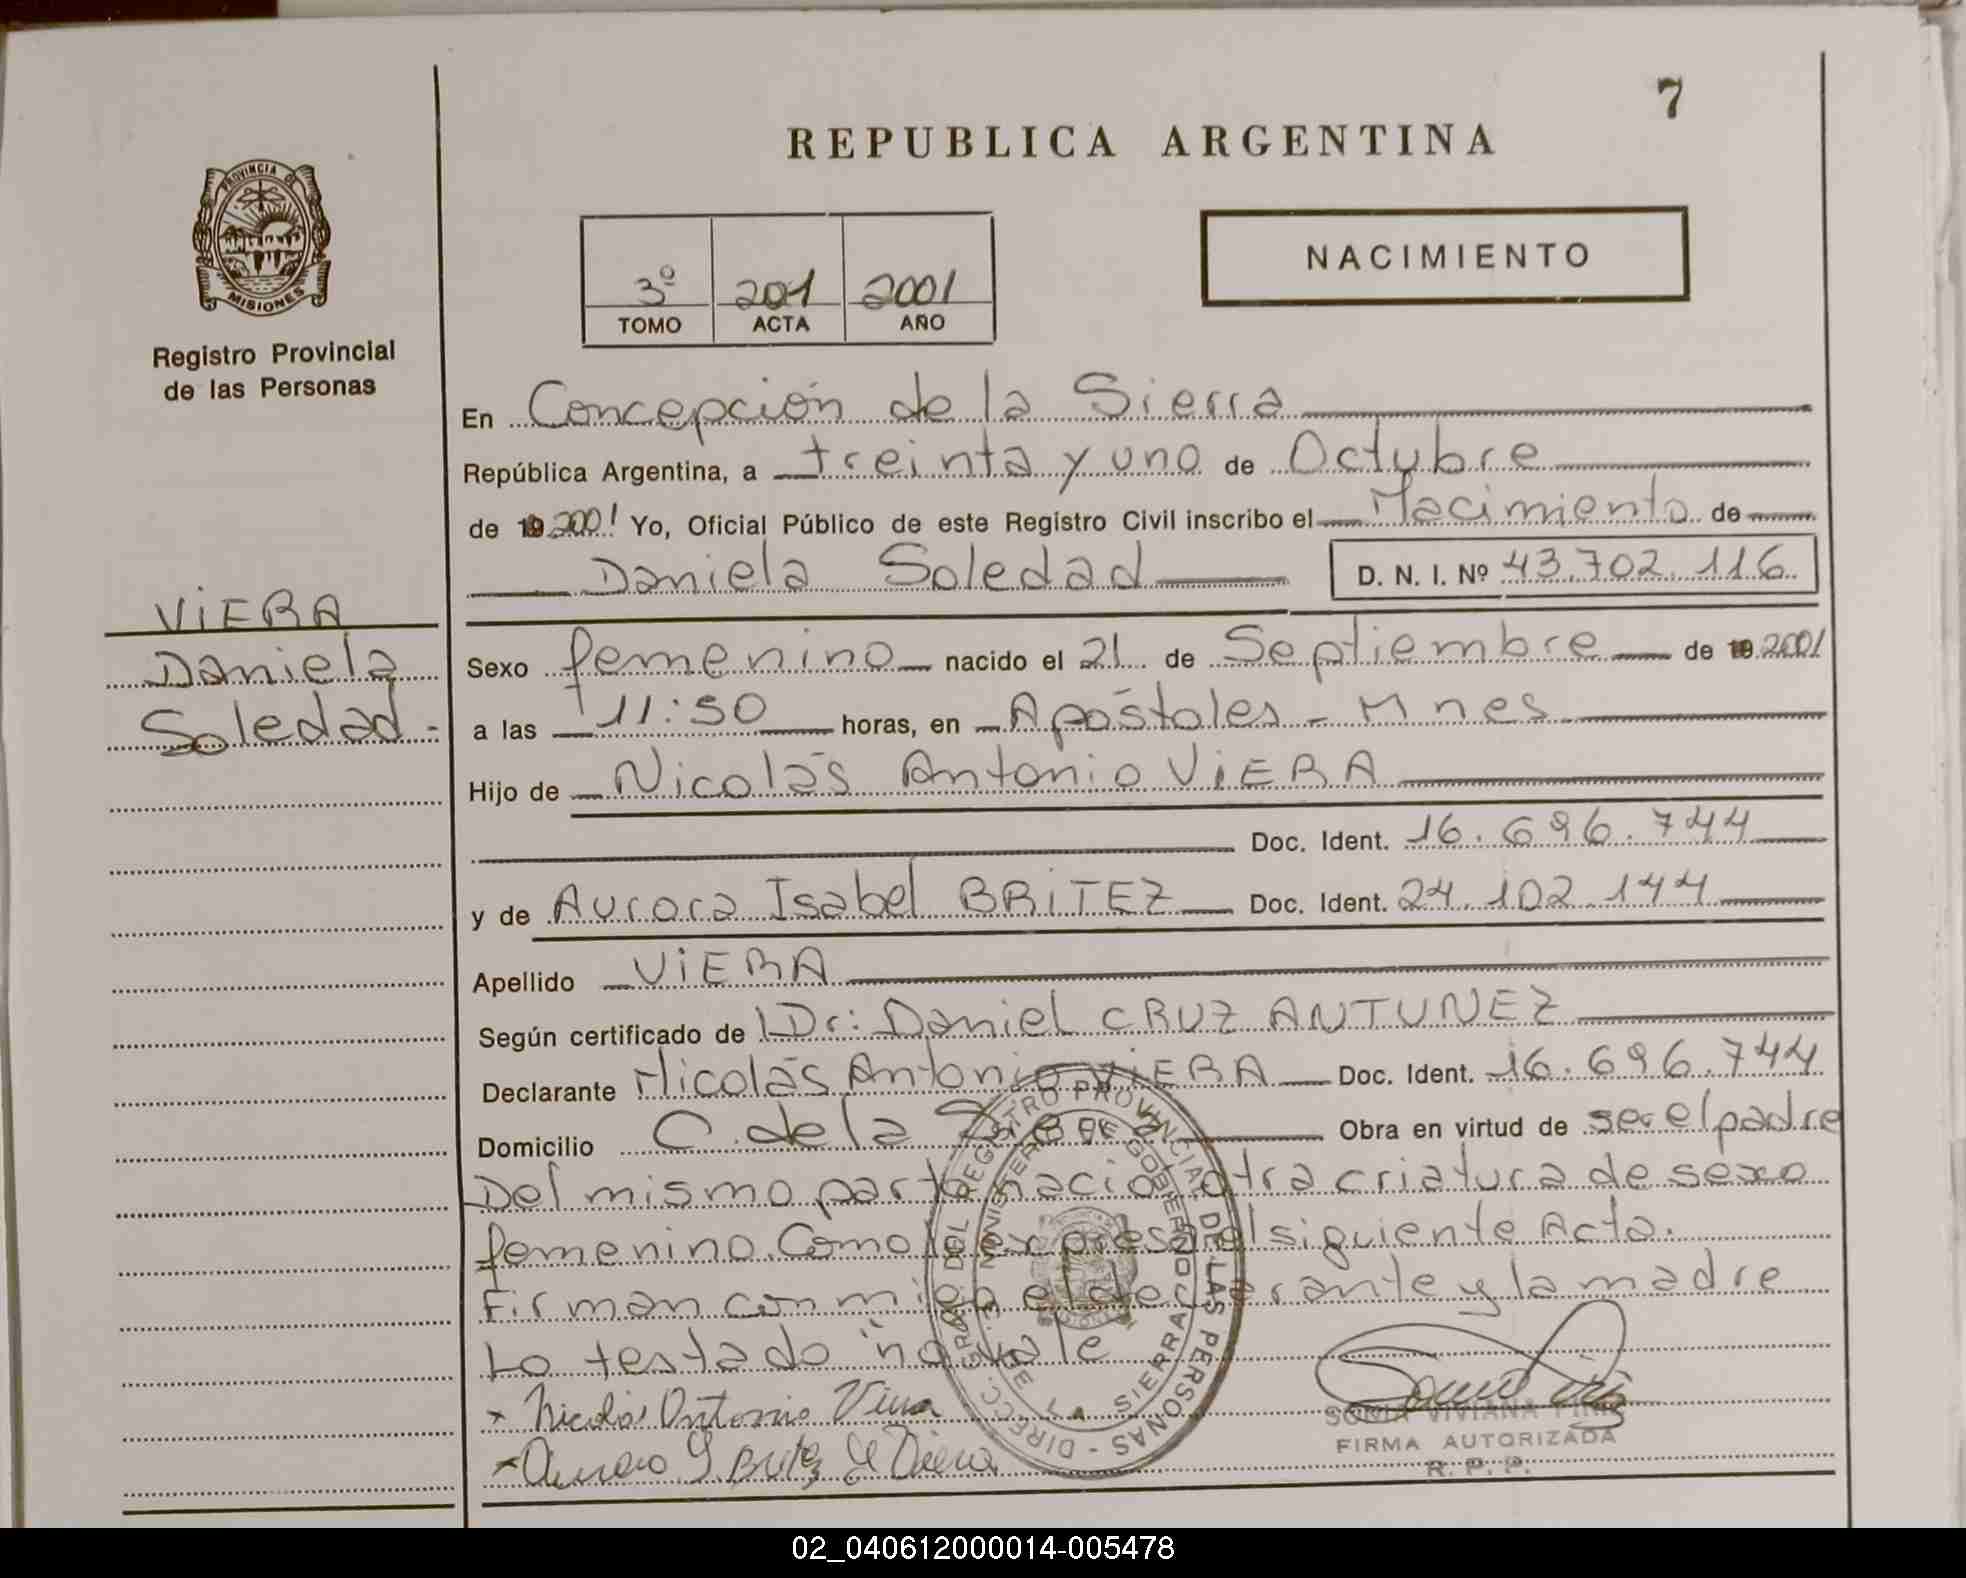 7
REPUBLICA ARGENTINA
PROVINCIA DE
MISIONES
Registro Provincial
de las Personas
NACIMIENTO
3º 201 2001
TOMO ACTA AÑO
En Concepción de la Sierra
República Argentina, a treinta y uno de Octubre
de 19 2001 Yo, Oficial Público de este Registro Civil inscribo el Nacimiento de
Daniela Soledad D. N. I. Nº 43.702.116
VIERA
Daniela
Soledad.-
Sexo femenino nacido el 21 de Septiembre de 19 2001
a las 11:50 horas, en Apóstoles - Mnes
Hijo de Nicolás Antonio VIERA
Doc. Ident. 16.696.744
y de Aurora Isabel BRITEZ Doc. Ident. 24.102.144
Apellido VIERA
Según certificado de Dr: Daniel CRUZ ANTUNEZ
Declarante Nicolás Antonio VIERA Doc. Ident. 16.696.744
Domicilio C. de la Sierra Obra en virtud de ser el padre
Del mismo parto nació otra criatura de sexo
femenino. Como lo expresa el siguiente Acta.
Firman con migo el declarante y la madre
Lo testado no vale
Nicolás Antonio Viera
Aurora I Britez de Viera
DIRECC. GRAL. DEL REGISTRO PROVINCIAL DE LAS PERSONAS
MINISTERIO DE GOBIERNO
SIERRA
SONIA VIVIANA
FIRMA AUTORIZADA
R. P. P.
02_040612000014-005478